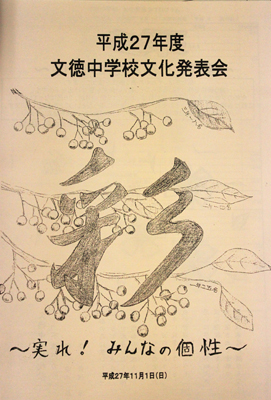 平成27年度
文徳中学校文化発表会
彩
～実れ！みんなの個性～
平成27年11月1日(日)